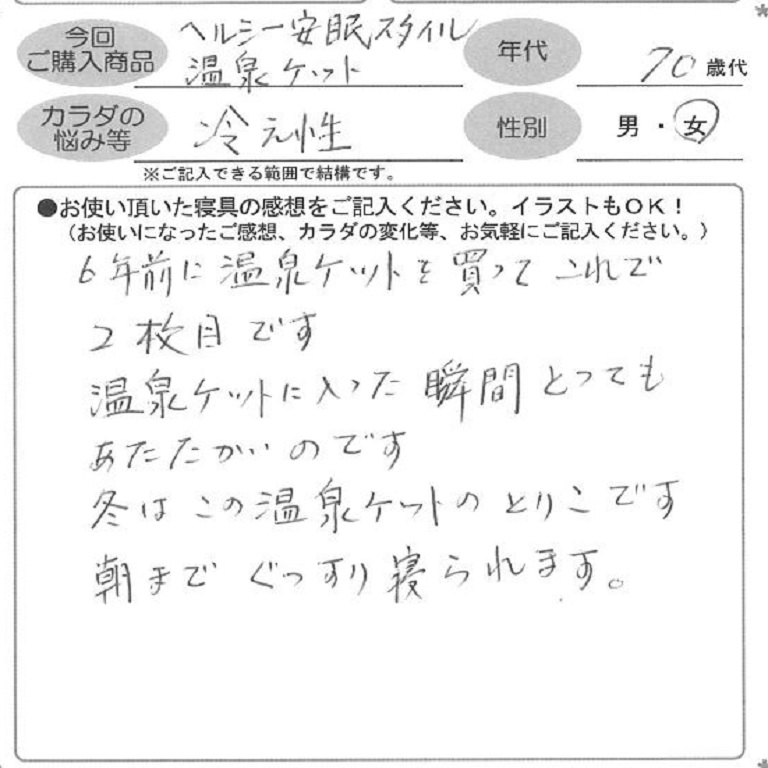 今回
ご購入商品
ヘルシー安眠スタイル
温泉ケット
年代
70歳代
カラダの
悩み等
冷え性
性別
男・女
※ご記入できる範囲で結構です。
●お使い頂いた寝具の感想をご記入ください。イラストもOK!
(お使いになったご感想、カラダの変化等、お気軽にご記入ください。)
6年前に温泉ケットを買って これで
2枚目です
温泉ケットに入った瞬間とっても
あたたかいのです
冬はこの温泉ケットのとりこです
朝までぐっすり寝られます。